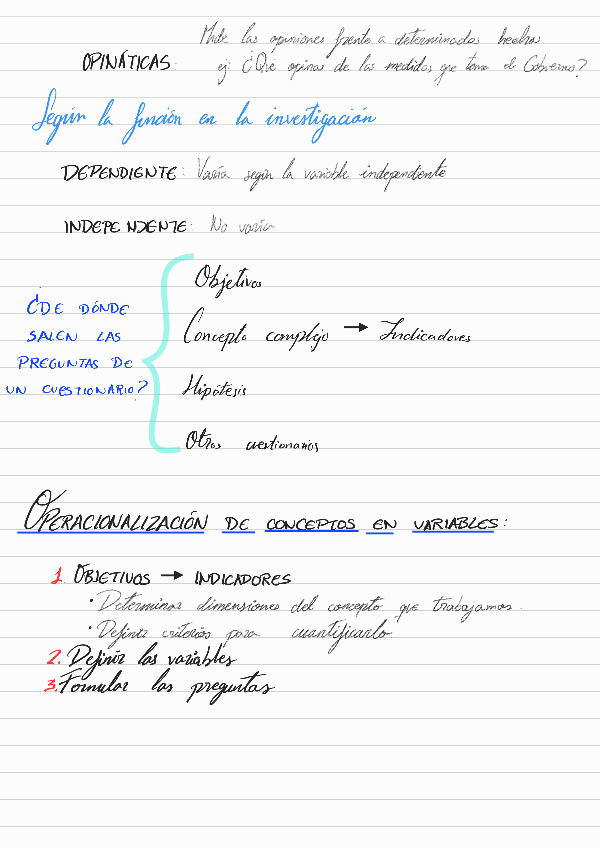 Mide las opiniones frente a determinados hechos
OPINÁTICAS: ej: ¿Qué opinas de las medidas que toma el Gobierno?
Según la función en la investigación
DEPENDIENTE: Varía según la variable independiente
INDEPENDIENTE: No varía
Objetivos
¿DE DÓNDE
SALEN LAS
PREGUNTAS DE
UN CUESTIONARIO?
Concepto complejo → Indicadores
Hipótesis
Otros cuestionarios
OPERACIONALIZACIÓN DE CONCEPTOS EN VARIABLES:
1. OBJETIVOS → INDICADORES
• Determinar dimensiones del concepto que trabajamos.
• Definir criterios para cuantificarlo
2. Definir las variables
3. Formular las preguntas